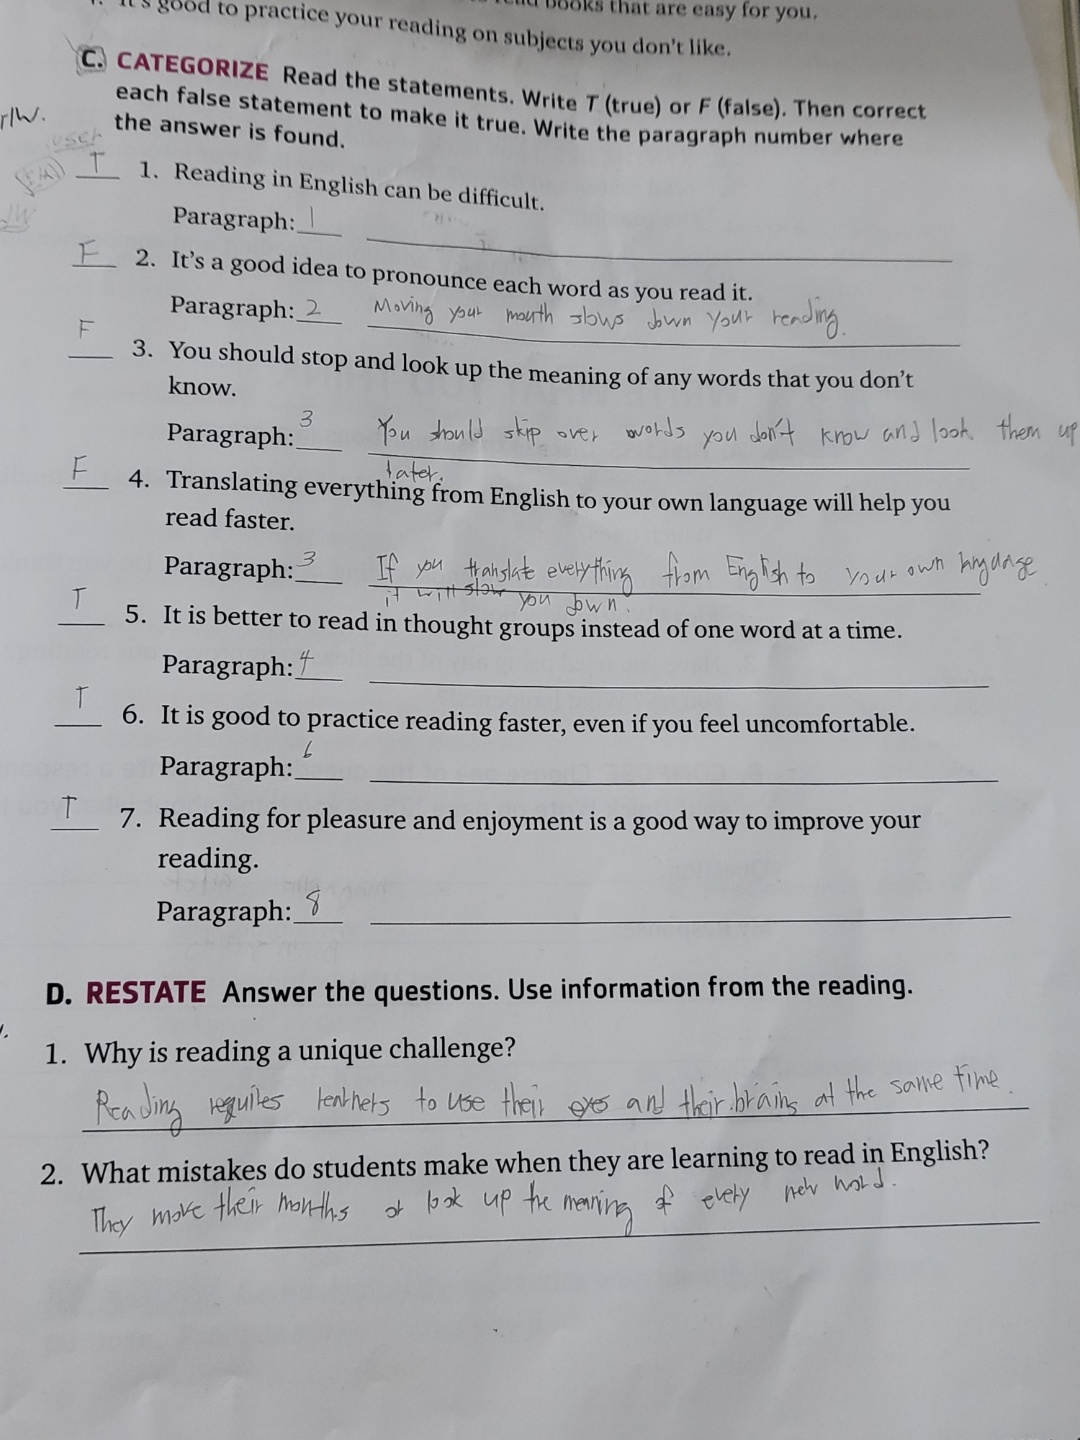 books that are easy for you.
It's good to practice your reading on subjects you don't like.
C. CATEGORIZE Read the statements. Write T (true) or F (false). Then correct
each false statement to make it true. Write the paragraph number where
the answer is found.
T 1. Reading in English can be difficult.
Paragraph: 1
F 2. It's a good idea to pronounce each word as you read it.
Paragraph: 2 Moving your mouth slows down your reading.
F 3. You should stop and look up the meaning of any words that you don't
know.
Paragraph: 3 You should skip over words you don't know and look them up
later.
F 4. Translating everything from English to your own language will help you
read faster.
Paragraph: 3 If you translate everything from English to your own language
it will slow you down.
T 5. It is better to read in thought groups instead of one word at a time.
Paragraph: 4
T 6. It is good to practice reading faster, even if you feel uncomfortable.
Paragraph: 6
T 7. Reading for pleasure and enjoyment is a good way to improve your
reading.
Paragraph: 8
D. RESTATE Answer the questions. Use information from the reading.
1. Why is reading a unique challenge?
Reading requires to use their eyes and their brains at the same time.
2. What mistakes do students make when they are learning to read in English?
They move their or look up the meaning of every new word.